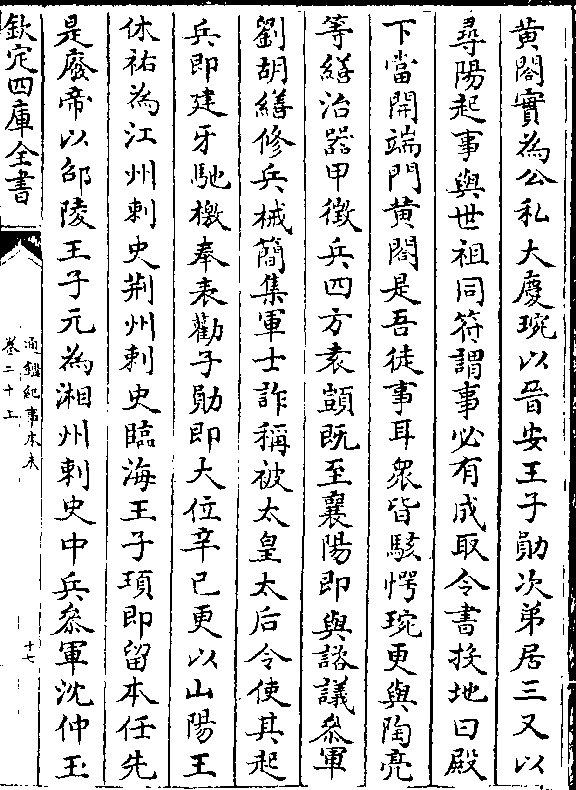 黄閤實為公私大慶琬以晉安王子勛次弟居三又以
尋陽起事與世祖同符謂事必有成取令書投地曰殿
下當開端門黄閤是吾徒事耳衆皆駭愕琬更與陶亮
等繕治器甲徵兵四方袁顗既至襄陽即與諮議叅軍
劉胡繕修兵械簡集軍士詐稱被太皇太后令使其起
兵即建牙馳檄奉表勸子勛即大位辛巳更以山陽王
休祐為江州刺史荆州刺史臨海王子頊即留本任先
是廢帝以邵陵王子元為湘州刺史中兵叅軍沈仲玉
欽定四庫全書
通鑑紀事本末
卷二十上
十七